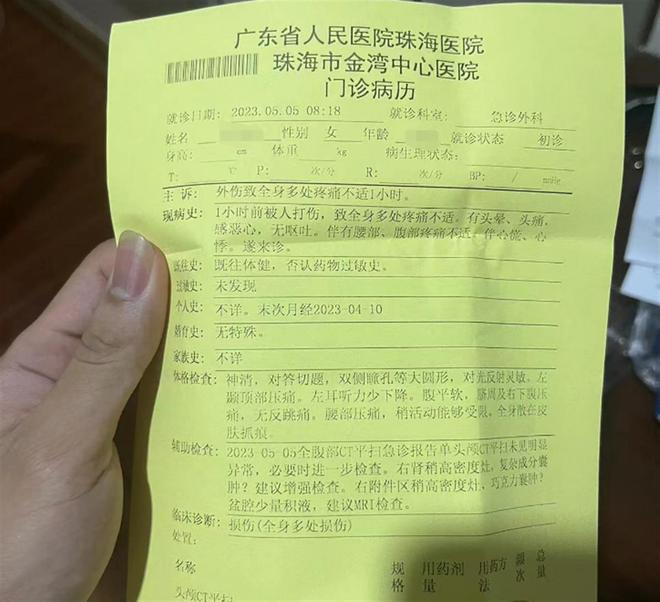 广东省人民医院珠海医院
珠海市金湾中心医院
门诊病历
就诊日期: 2023.05.05 08:18 就诊科室: 急诊外科
姓名 性别 女 年龄 就诊状态 初诊
身高: cm 体重 kg 病生理状态:
T: ℃ P: 次/分 R: 次/分 BP: / mmHg
主 诉: 外伤致全身多处疼痛不适1小时。
现病史: 1小时前被人打伤，致全身多处疼痛不适。有头晕、头痛，
感恶心，无呕吐。伴有腰部、腹部疼痛不适。伴心慌、心
悸。遂来诊。
既往史: 既往体健，否认药物过敏史。
过敏史: 未发现
个人史: 不详。末次月经2023-04-10
婚育史: 无特殊。
家族史: 不详
体格检查: 神清，对答切题，双侧瞳孔等大圆形，对光反射灵敏。左
颞顶部压痛。左耳听力少下降。腹平软，脐周及右下腹压
痛，无反跳痛。腰部压痛，稍活动能够受限，全身散在皮
肤抓痕。
辅助检查: 2023-05-05全腹部CT平扫急诊报告单头颅CT平扫未见明显
异常，必要时进一步检查。右肾稍高密度灶，复杂成分囊
肿？建议增强检查。右附件区稍高密度灶，巧克力囊肿？
盆腔少量积液，建议MRI检查。
临床诊断: 损伤(全身多处损伤)
处置:
名称 规格 用药剂量 用药方法 频次 总量
头颅CT平扫